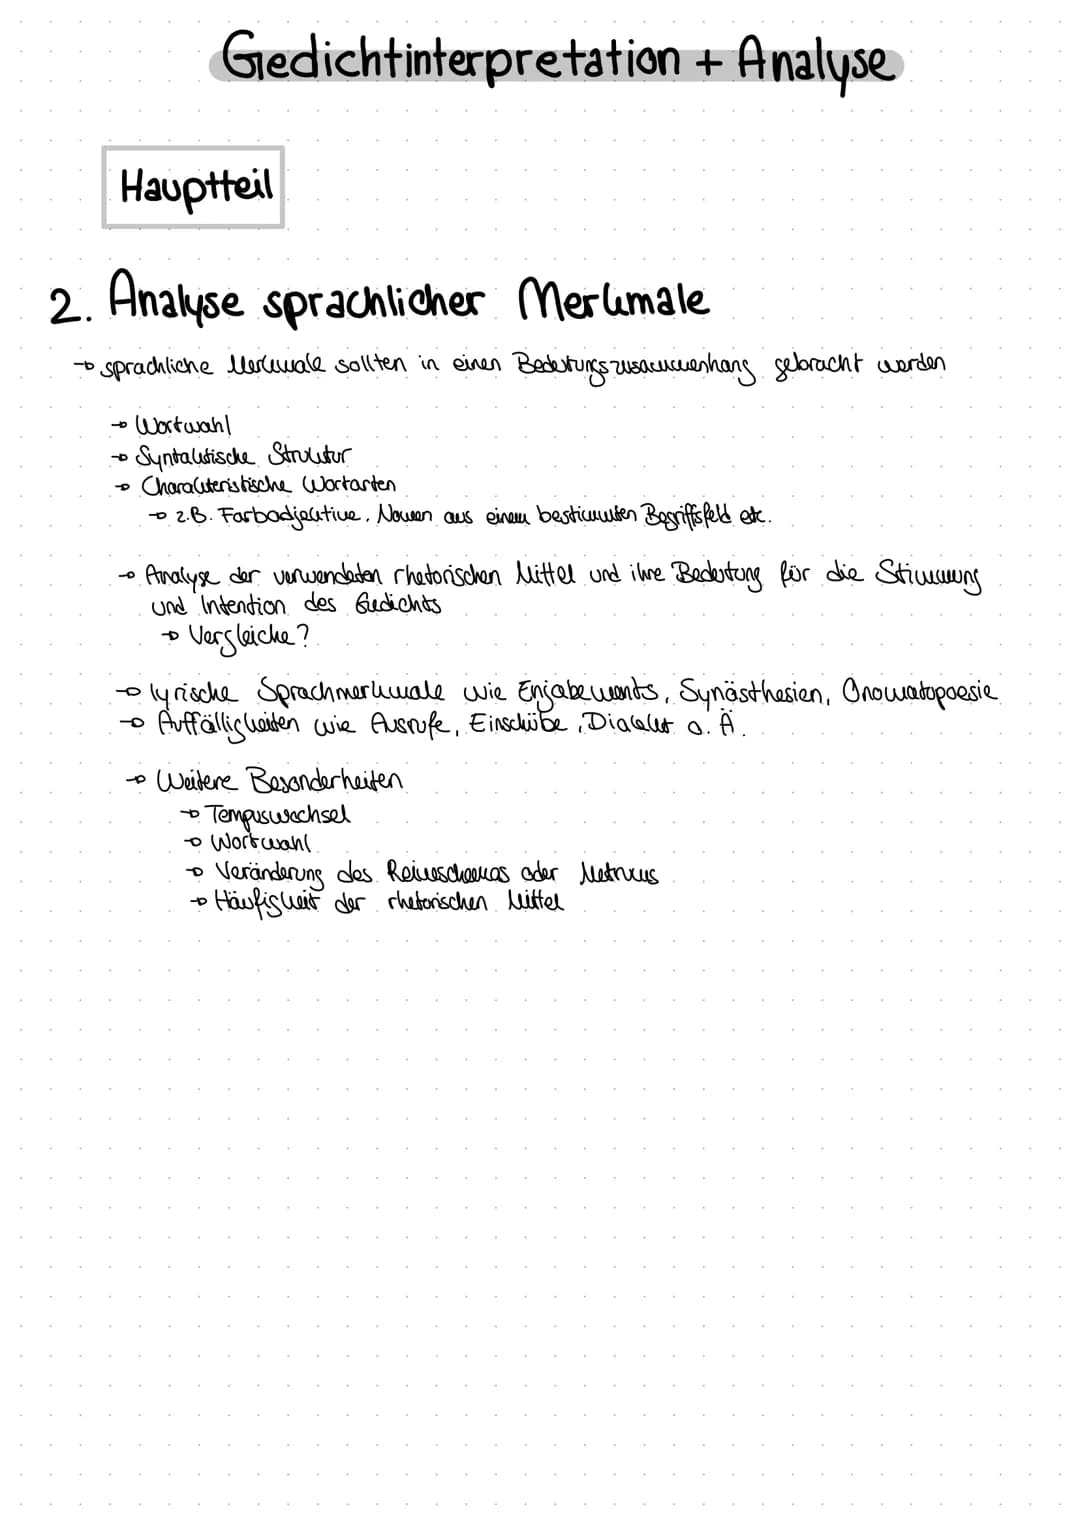 Gedichtinterpretation + Analyse
Hauptteil
2. Analyse sprachlicher Merkmale
→ sprachliche Merkmale sollten in einen Bedeutungszusammenhang gebracht werden
→ Wortwahl
→ Syntaktische Struktur
→ Charakteristische Wortarten
→ z.B. Farbadjektive, Nomen aus einem bestimmten Begriffsfeld etc.
→ Analyse der verwendeten rhetorischen Mittel und ihre Bedeutung für die Stimmung
und Intention des Gedichts
→ Vergleiche?
→ lyrische Sprachmerkmale wie Enjabements, Synästhesien, Onomatopoesie
→ Auffälligkeiten wie Ausrufe, Einschübe, Dialekt o. Ä.
→ Weitere Besonderheiten
→ Tempuswechsel
→ Wortwahl
→ Veränderung des Reimschemas oder Metrums
→ Häufigkeit der rhetorischen Mittel